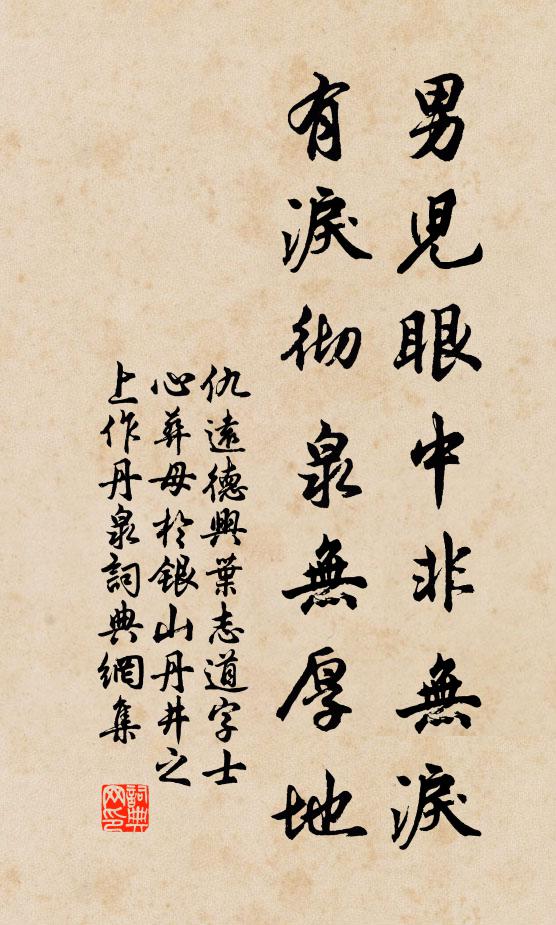 男兒眼中非無淚
有淚徹泉無厚地
仇遠德興葉志道字士
心葬母於銀山丹井之
上作丹泉詞典網集
詞典
网印